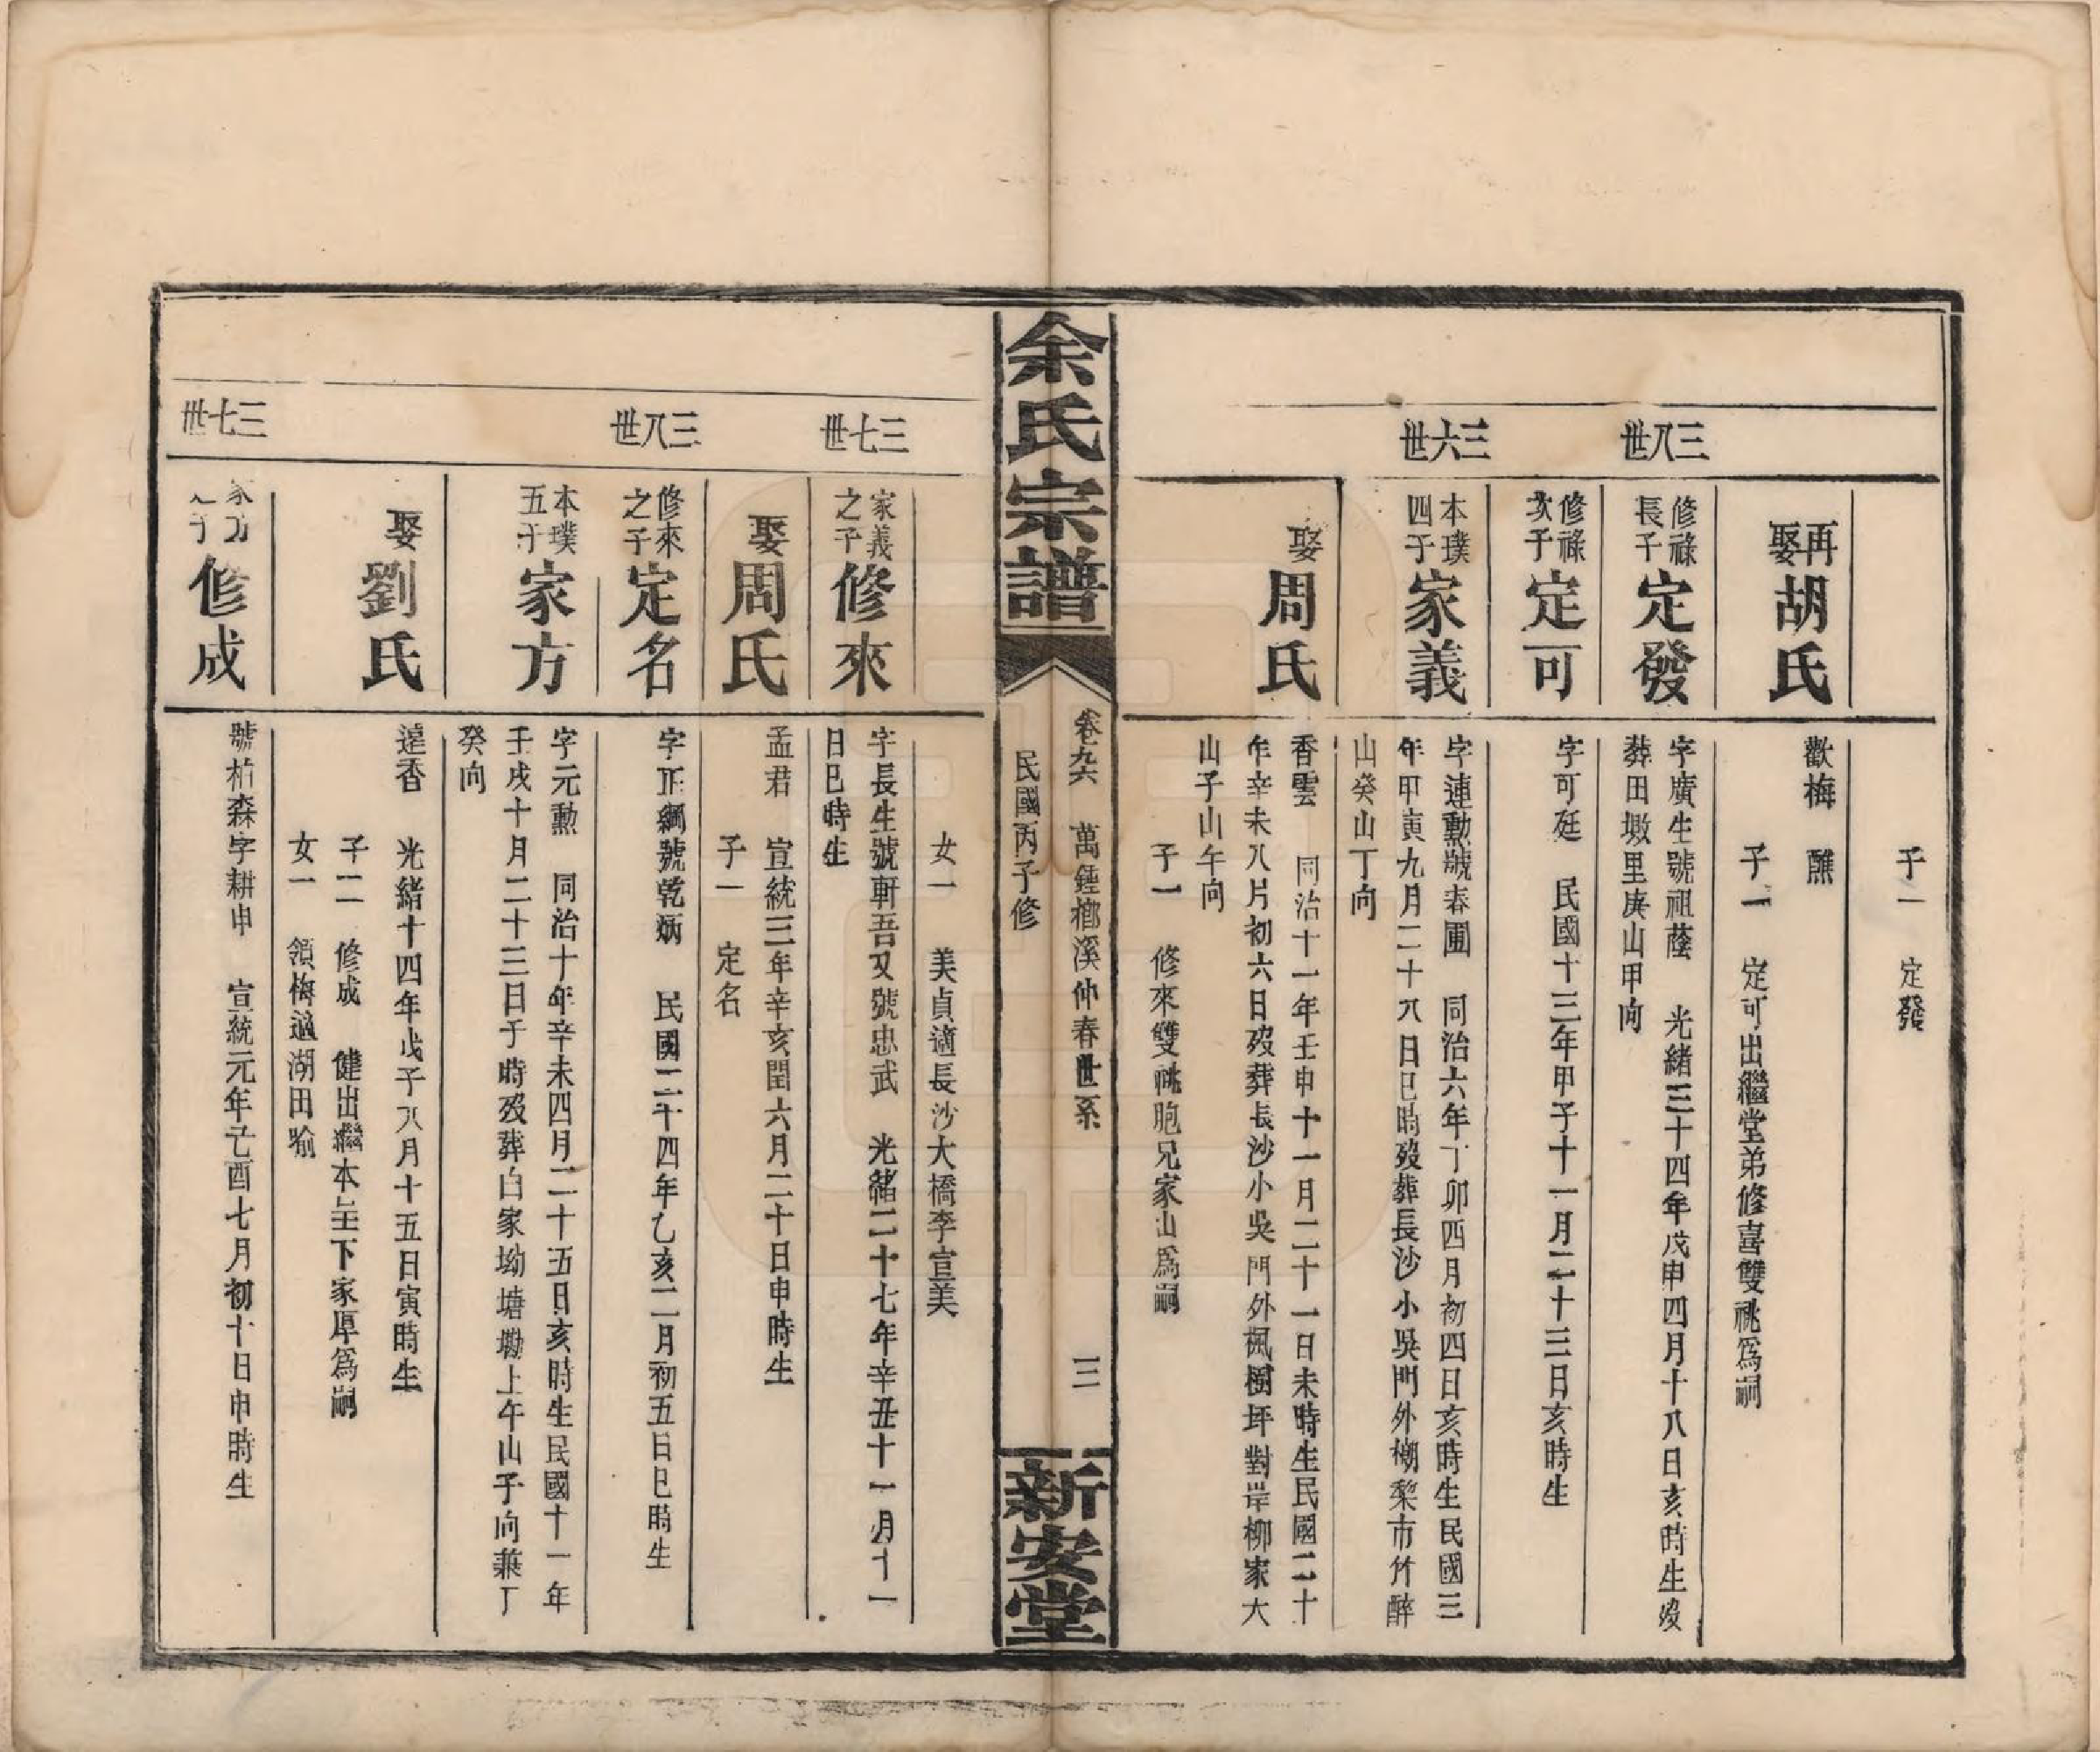 子一　定發
再娶胡氏
歡梅　醮
子一　定可出繼堂弟修喜雙祧爲嗣
三八世
修祿長子定發
字廣生號祖蔭　光緒三十四年戊申四月十八日亥時生歿
葬田墩里庚山甲向
修祿次子定可
字可廷　民國十三年甲子十一月二十三日亥時生
三六世
本璞四子家義
字連勳號春圃　同治六年丁卯四月初四日亥時生民國三
年甲寅九月二十八日巳時歿葬長沙小吳門外㮾梨市竹醉
山癸山丁向
娶周氏
香雲　同治十一年壬申十一月二十一日未時生民國二十
年辛未八月初六日歿葬長沙小吳門外楓樹坪對岸柳家大
山子山午向
子一　修來雙祧胞兄家山爲嗣
余氏宗譜
卷九六　萬鍾㮰溪仲春世系
民國丙子修
三
新安堂
女一　美貞適長沙大橋李宣美
三七世
家義之子修來
字長生號軒吾又號忠武　光緒二十七年辛丑十一月十一
日巳時生
娶周氏
孟君　宣統三年辛亥閏六月二十日申時生
子一　定名
三八世
修來之子定名
字正綱號乾炳　民國二十四年乙亥二月初五日巳時生
本璞五子家方
字元勳　同治十年辛未四月二十五日亥時生民國十一年
壬戌十月二十三日子時歿葬白家坳塘墈上午山子向兼丁
癸向
娶劉氏
遠香　光緒十四年戊子八月十五日寅時生
子二　修成　健出繼本呈下家厚爲嗣
女一　領梅適湖田喻
三七世
家方之子修成
號柏森字耕申　宣統元年己酉七月初十日申時生